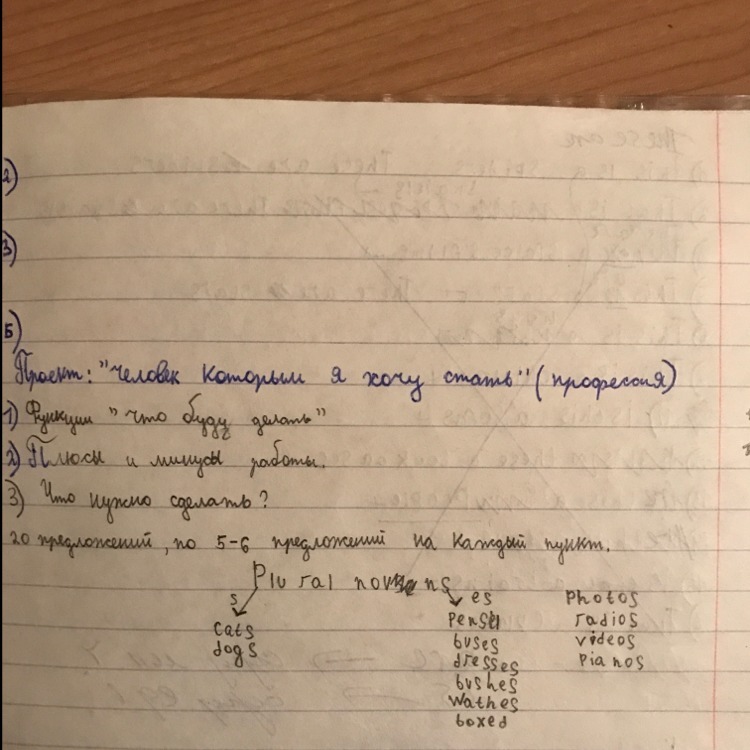 2)
3)
5)
Проект: "Человек которым я хочу стать" (профессия)
1) Функции "что буду делать"
2) Плюсы и минусы работы.
3) Что нужно сделать?
20 предложений, по 5-6 предложений на каждый пункт.
Plural nouns
s es photos
cats radios
dogs buses videos
dresses pianos
bushes
wathes
boxed